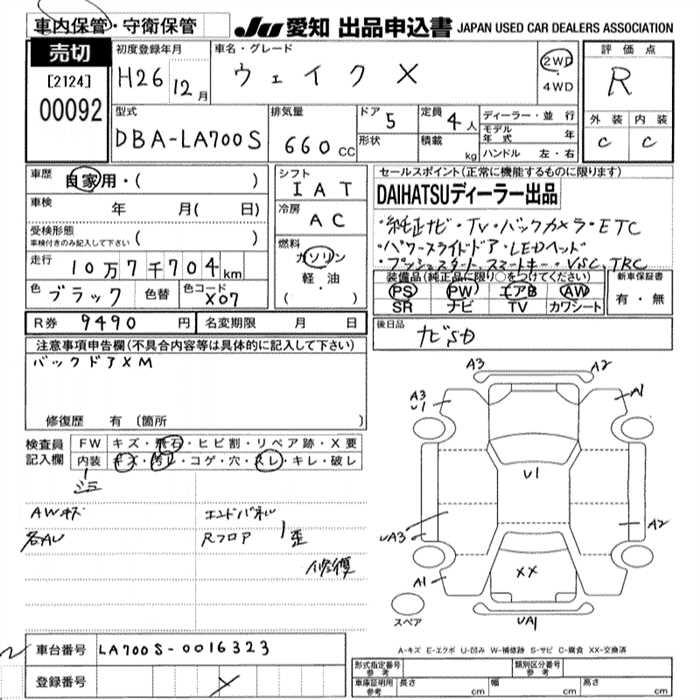 車内保管・守衛保管 JU 愛知 出品申込書 JAPAN USED CAR DEALERS ASSOCIATION
売切
[2124]
00092
初度登録年月 車名・グレード 評価点
H26 12月 ウェイク X 2WD・4WD R
型式 排気量 ドア 5 定員 4人 ディーラー・並行 外装 内装
DBA-LA700S 660cc 形状 積載 kg モデル年式 年 C C
ハンドル 左・右
車歴 自家用・( ) シフト セールスポイント(正常に機能するものに限ります)
IAT DAIHATSUディーラー出品
車検 年 月( 日) 冷房 ・純正ナビ・TV・バックカメラ・ETC
AC ・パワースライドドア・LEDヘッド
受検形態 ( ) ・プッシュスタート、スマートキー・VSC、TRC
車検付きのみ記入して下さい
燃料 ガソリン 軽油 ( )
走行 10万7千704km 装備品(純正品に限り○をつけてください) 新車保証書
PS PW エアB AW 有・無
SR ナビ TV カワシート
色 ブラック 色替 色コード X07
R券 9490円 名変期限 月 日 後日品 ナビSD
注意事項申告欄(不具合内容等は具体的に記入して下さい)
バックドアXM
修復歴 有 (箇所 )
A3 A2
A3
U1
A1
U1
UA3
A2
A1
XX
UA1
スペア
検査員記入欄 FW キズ・飛石・ヒビ割・リペア跡・X要
内装 キズ・汚レ・コゲ・穴・スレ・キレ・破レ
シミ
AWキズ エンドパネル
各AU Rフロア 歪
修復
A-キズ E-エクボ U-凹み W-補修跡 S-サビ C-腐食 XX-交換済
車台番号 LA700S-0016323
登録番号
形式指定番号 参考 類別区分番号 参考
車庫証明用 参考 長さ cm 幅 cm 高さ cm